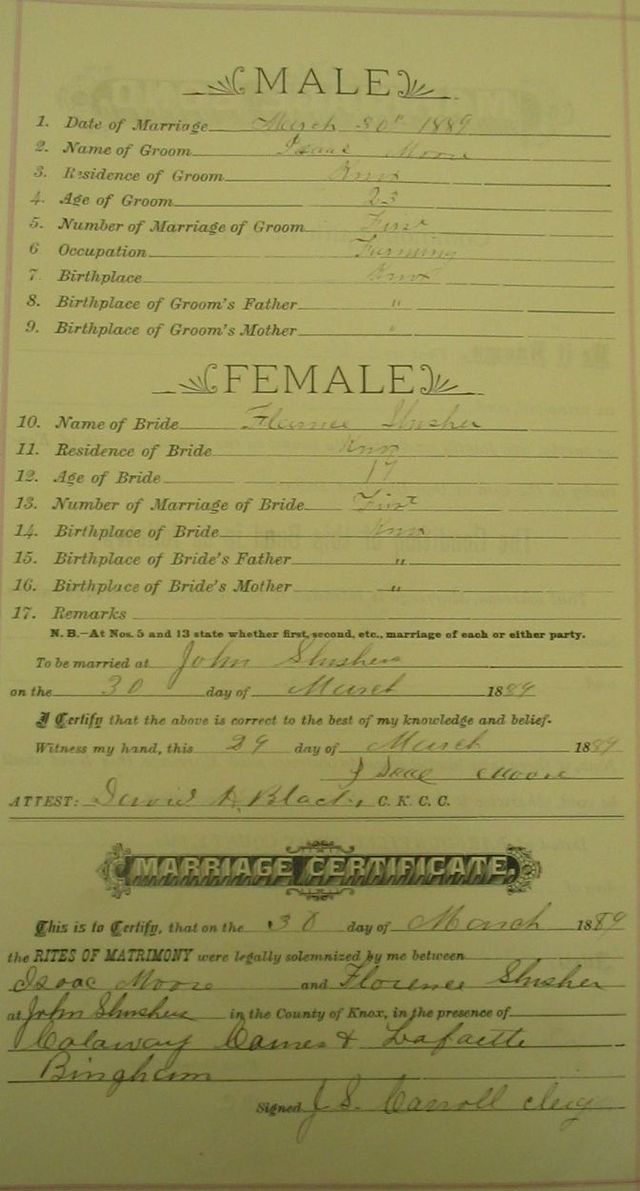 MALE
1. Date of Marriage March 30th 1889
2. Name of Groom Isaac Moore
3. Residence of Groom Knox
4. Age of Groom 23
5. Number of Marriage of Groom First
6 Occupation Farming
7. Birthplace Knox
8. Birthplace of Groom's Father "
9. Birthplace of Groom's Mother "
FEMALE
10. Name of Bride Florence Slusher
11. Residence of Bride Knox
12. Age of Bride 17
13. Number of Marriage of Bride First
14. Birthplace of Bride Knox
15. Birthplace of Bride's Father "
16. Birthplace of Bride's Mother "
17. Remarks
N. B.—At Nos. 5 and 13 state whether first, second, etc., marriage of each or either party.
To be married at John Slushers
on the 30 day of March 1889
I Certify that the above is correct to the best of my knowledge and belief.
Witness my hand, this 29 day of March 1889
Isaac Moore
ATTEST: David Black, C. K. C. C.
MARRIAGE CERTIFICATE.
This is to Certify, that on the 30 day of March 1889
the RITES OF MATRIMONY were legally solemnized by me between
Isaac Moore and Florence Slusher
at John Slushers in the County of Knox, in the presence of
Calaway Carnes & Lafaette
Bingham
Signed J. S. Carroll